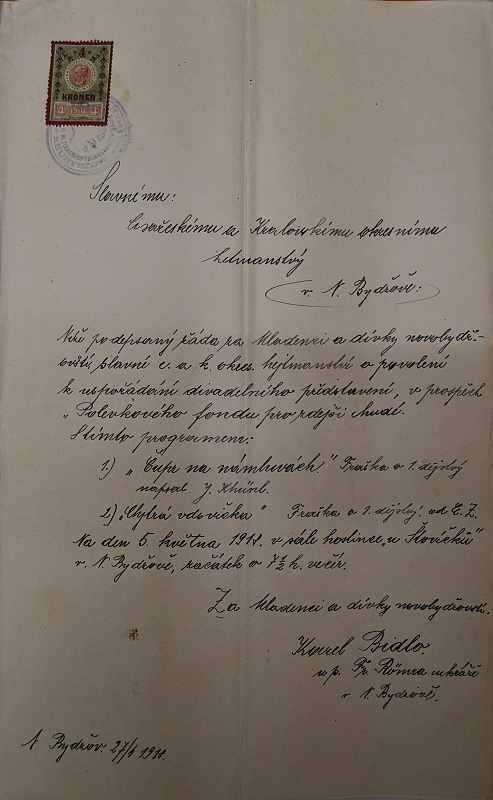 4
KRONEN
4 4
Slavnému:
Císařskému a Královskému okresnímu
hetmanství
v. N. Bydžově:
Níže podepsaný žádá za Mladenci a dívky novobydž-
ovští, slavné c. a k. okres. hejtmanství o povolení
k uspořádání divadelního představení, v prospěch
"Polévkového fondu pro zdejší chudé.
S tímto programem:
1.) "Čupr na námluvách." Fraška o 1. dějství
napsal. J.
2) "Chytrá vdovička" Fraška o 1. dějství. od E. Z.
Na den 5. května 1918. v sále hostince "u Slovíčků"
v. N. Bydžově, začátek o 7½ h. večír.
Za Mladenci a dívky novobydžovští.
Karel Bidlo.
u p. Fr. Römra cukráře
v N. Bydžově.
N. Bydžov. 27/4 1918.